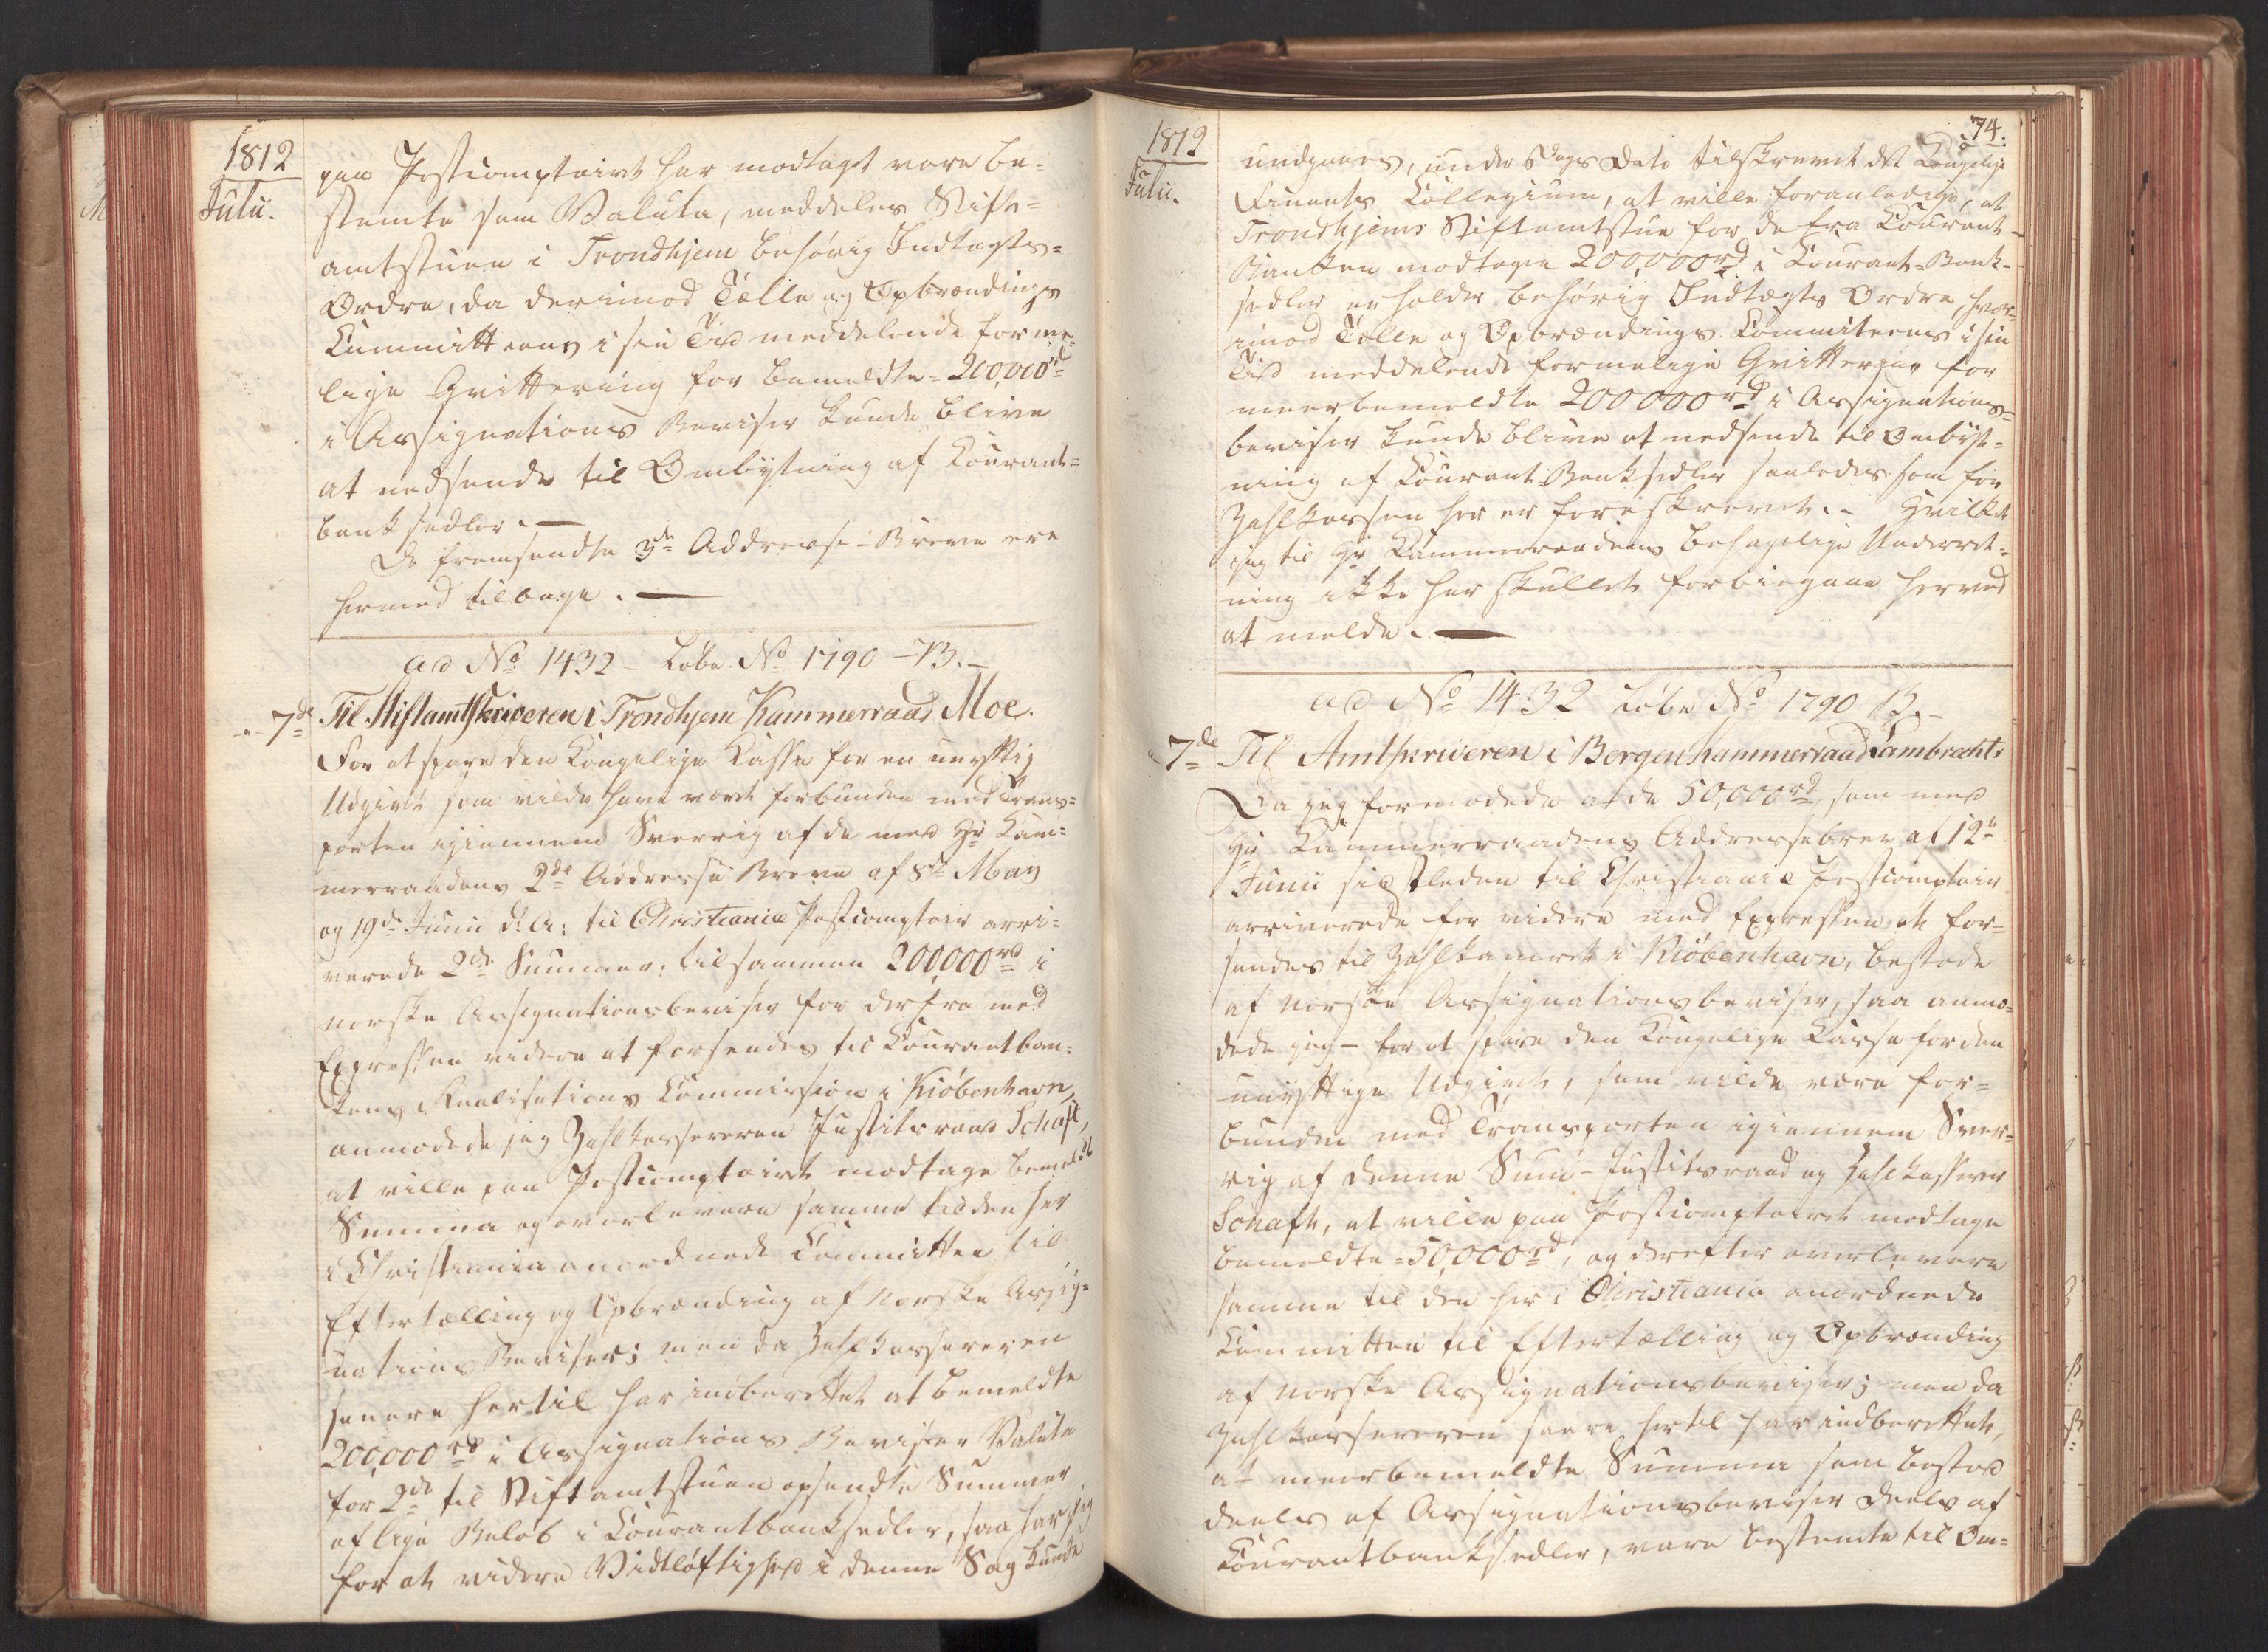 1812
Julii.
paa Postcomptoiret har modtaget vare be-
stemte som Valuta, meddeles Stift-
amtstuen i Trondhjem behørig Indtægts-
Ordre, da derimod Tælle og Opbrændings
Committeens i sin Tid meddelende forme-
lige Qvittering for bemeldte 200,000 rd
i Assignations Beviser kunde blive
at nedsende til Ombytning af Courant-
banksedler. —
De fremsendte 3de Addresse-Breve ere
hermed tilbage. —
ad No 1432 - Løbe No 1790 - B. -
- 7de Til Stiftamtskriveren i Trondhjem Kammerraad Moe.
For at spare den Kongelige Casse for en unyttig
Udgivt som vilde have vært forbunden med Trans-
porten igiennem Sverrig af de med Hr Kam-
merraadens 2de Addresse Breve af 8de May
og 19de Junii d: A: til Christiania Postcomptoir arri-
verede 2de Summer, tilsammen 200,000 rd i
norske Assignationsbeviser for derfra med
Expressen videre at forsendes til Courantban-
kens Realisations Commission i Kiöbenhavn,
anmodede jeg Zahlkassereren Justitsraad Schaft,
at ville paa Postcomptoiret modtage bemeldte
Summa og overlevere samme til den her
i Christiania anordnede Committee til
Eftertælling og Opbrænding af Norske Assig-
nations Beviser; men da Zahlkassereren
senere hertil har indberettet at bemeldte
200,000 rd i Assignations Beviser Valuta
for 2de til Stiftamtstuen opsendte Summer
af lige Beløb i Courantbanksedler, saa har jeg
for at videre Vidtløftighed i denne Sag kunde
74.
1812
Julii.
undgaaes, under Dags Dato tilskrevet det Kongelige
Finants Collegium, at ville foranledige, at
Trondhjems Stiftamtstue for de fra Courant-
Banken modtagne 200,000 rd i Courant-Bank-
sedler erholder behørig Indtægts Ordre, hvor-
imod Tælle og Opbrændings Committeens i sin
Tid meddelende formelige Qvittering for
meerbemeldte 200000 rd i Assignations-
beviser kunde blive at nedsende til Ombyt-
ning af Courant-Banksedler saaledes som for
Zahlkassen her er foreskrevet. - Hvilket
jeg til Hr Kammerraadens behagelige Underret-
ning ikke har skullet forbiegaae herved
at melde. —
ad No 1432 Løbe No 1790 B. -
- 7de Til Amtskriveren i Bergen Kammerraad Lambrechts
Da jeg formodede at de 50,000 rd, som med
Hr Kammerraadens Addressebrev af 12te
Junii sidstleden til Christiania Postcomptoir
arriverede for videre med Expressen at for-
sendes til Zahlkameret i Kiöbenhavn, bestode
af norske Assignationsbeviser, saa anmo-
dede jeg - for at spare den Kongelige Casse for den
unyttige Udgivt, som vilde være for-
bunden med Transporten igiennem Sver-
rig af denne Sum - Justitsraad og Zahlkasserer
Schaft, at ville paa Postcomptoiret modtage
bemeldte 50,000 rd, og derefter overlevere
samme til den her i Christiania anordnede
Committee til Eftertælling og Opbrænding
af norske Assignationsbeviser; men da
Zahlkassereren senere hertil har indberettet,
at meerbemeldte Summa som bestod
deels af Assignationsbeviser deels af
Courantbanksedler, vare bestemte til Om-